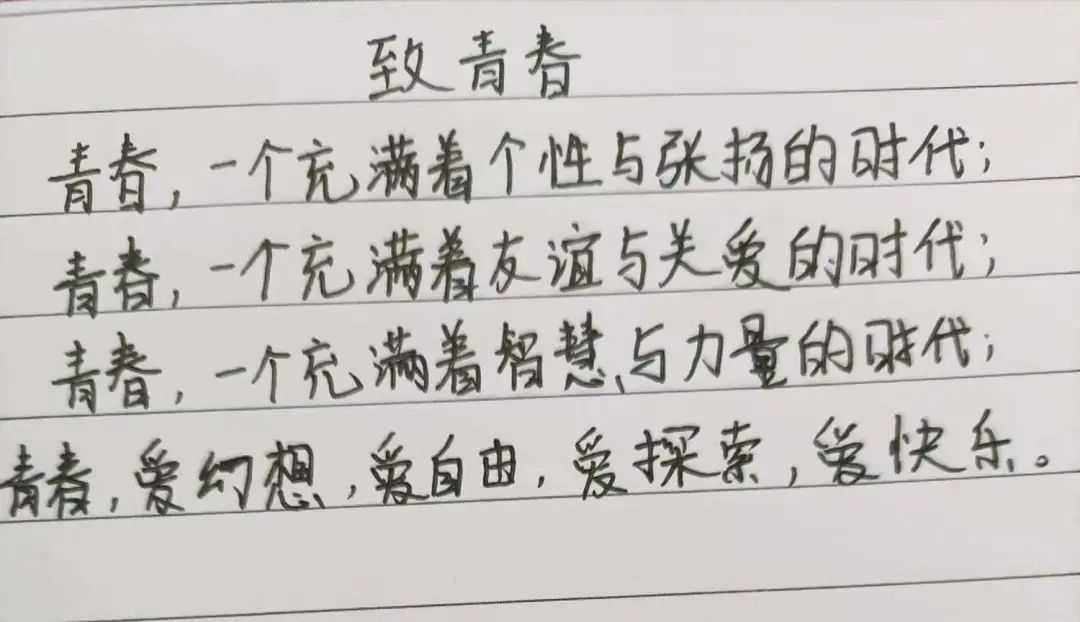 致青春
青春,一个充满着个性与张扬的时代;
青春,一个充满着友谊与关爱的时代;
青春,一个充满着智慧与力量的时代;
青春,爱幻想,爱自由,爱探索,爱快乐。